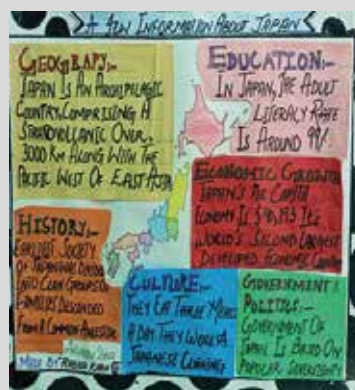 A FEW INFORMATION ABOUT JAPAN
GEOGRAPY:-
JAPAN IS AN ARCHIPELAGIC
COUNTRY, COMPRISING A
STRATOVOLCANIC OVER,
3000 KM ALONG WITH THE
PACIFIC WEST OF EAST ASIA
EDUCATION:-
IN JAPAN, THE ADULT
LITERACY RATE
IS AROUND 99%
ECONOMIC
JAPAN'S PER CAPITA
ECONOMY IS ITS
WORLD'S SECOND LARGEST
DEVELOPED ECONOMIC
HISTORY:-
EARLIEST SOCIETY
OF JAPAN WAS DIVIDED
INTO CLAN GROUPS OR
FAMILIES DESCENDED
FROM A COMMON ANCESTOR
MADE BY
CULTURE:-
THEY EAT THREE MEALS
A DAY THEY WORE A
JAPANESE CLOTHING
GOVERNMENT &
POLITICS:-
GOVERNMENT OF
JAPAN IS BASED ON
POPULAR SOVEREIGNTY